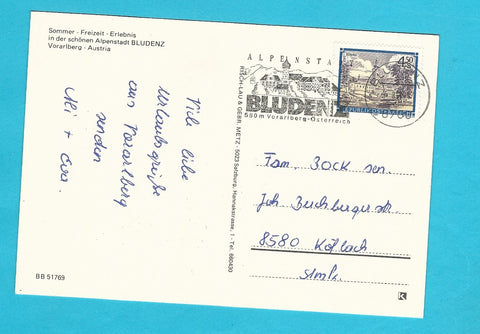 Sommer · Freizeit · Erlebnis
in der schönen Alpenstadt BLUDENZ
Vorarlberg · Austria
Viele liebe
Urlaubsgrüße
aus Vorarlberg
senden
Uli + Eva.
BB 51769
RISCH-LAU & GEBR. METZ · 5023 Salzburg, Hannakstrasse, 1 · Tel.
ALPENSTADT
BLUDENZ
580 m Vorarlberg-Österreich
4.50
REPUBLIK ÖSTERREICH
Fam. BOCK sen.
Joh. Buchberger str.
8580 Köflach
Stmk.
K